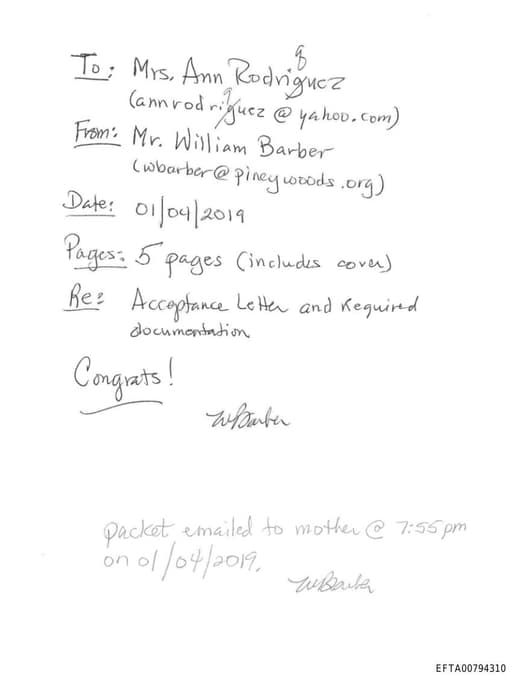 To: Mrs. Ann Rodriguez
(annrodriguez@yahoo.com)
From: Mr. William Barber
(wbarber@pineywoods.org)
Date: 01/04/2019
Pages: 5 pages (includes cover)
Re: Acceptance Letter and Required
documentation
Congrats!
WBarber
packet emailed to mother @ 7:55pm
on 01/04/2019.
WBarber
EFTA00794310